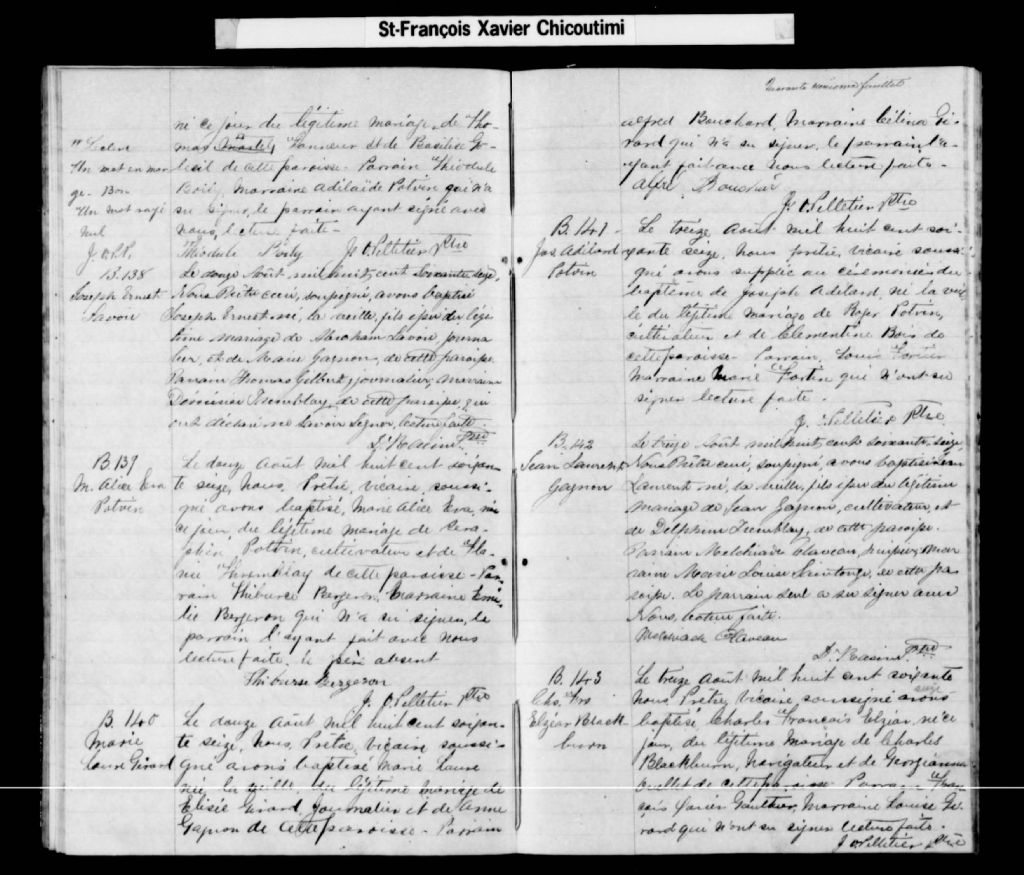 St-François Xavier Chicoutimi
né ce jour du légitime mariage de Tho-
mas Tanneur et de Basilise Go-
beil de cette paroisse - Parrain Théodule
Marraine Adilaïde Potvin qui n'a
su signer, le parrain ayant signé avec
nous, lecture faite -
J. O. Pelletier Ptre
Un mot en mar
ge - Bon
Un mot rayé
nul
J. O. P.
B. 138
Joseph Ernest
Lavoie
Le douze Août mil huit cent soixante seize,
Nous Prêtre curé, soussigné, avons baptisé
Joseph Ernest né, la veille, fils issu du légi
time mariage de Abraham Lavoie, journa
lier, et de Marie Gagnon, de cette paroisse.
Parrain Thomas Gilbert, journalier, marraine
Tremblay, de cette paroisse, qui
ont déclaré ne savoir signer, lecture faite.
D. Racine Ptre
B. 139
M. Alice Eva
Potvin
Le douze Août mil huit cent soixan-
te seize, Nous, Prêtre, vicaire, soussi-
gné avons baptisé, Marie Alice Eva, née
ce jour, du légitime mariage de Séra-
phin Potvin, cultivateur et de
Thremblay de cette paroisse - Par-
rain Thiburce Bergeron, Marraine Emi-
lie Bergeron qui n'a su signer, le
parrain l'ayant fait avec nous
lecture faite. le père absent
Thiburse Bergeron
J. O. Pelletier Ptre
B. 140
Marie
Laure Girard
Le douze Août mil huit cent soixan-
te seize, Nous, Prêtre, Vicaire soussi-
gné avons baptisé Marie Laure
née, la veille, du légitime mariage de
Elisée Girard Journalier et de Anne
Gagnon de cette paroisse - Parrain
Quarante onzième feuillet
alfred Bouchard, Marraine Célina Gi-
rard qui n'a su signer, le parrain l'a-
yant fait avec nous lecture faite -
Alfr. Bouchar
J. O. Pelletier Ptre
B. 141 -
Jos Adélard
Potvin
Le treize Août mil huit cent soi-
xante seize, Nous, prêtre, vicaire soussi-
gné avons supplée au cérémonies du
baptême de Joseph Adélard, né la veil
le du légitime mariage de Roger Potvin,
cultivateur et de Clementine Bois de
cette paroisse - Parrain, Louis Fortin
Marraine Marie Fortin qui n'ont su
signer lecture faite -
J. O. Pelletier Ptre
B. 142
Jean Laurent
Gagnon
Le treize Août mil huit cent soixante seize,
Nous Prêtre curé, soussigné, avons baptisé Jean
Laurent né, la veille, fils issu du légitime
mariage de Jean Gagnon, cultivateur, et
de Delphine Tremblay, de cette paroisse.
Parrain Melchiade Claveau, huissier, mar
raine Marie Louise Saintonge, de cette pa
roisse. Le parrain seul a su signer avec
Nous, lecture faite.
Melchiade Claveau
D. Racine Ptre
B. 143
Chs. Frs
Elzéar Black
burn
Le treize Août mil huit cent soixante
seize
nous, Prêtre, Vicaire, soussigné avons
baptisé Charles Francois Elzéar, né ce
jour, du légitime mariage de Charles
Blackburn, navigateur et de Georgeanna
Ouellet de cette paroisse Parrain Fran-
çois Xavier Gauthier, Marraine Louise Gi-
rard qui n'ont su signer lecture faite -
J. O. Pelletier Ptre